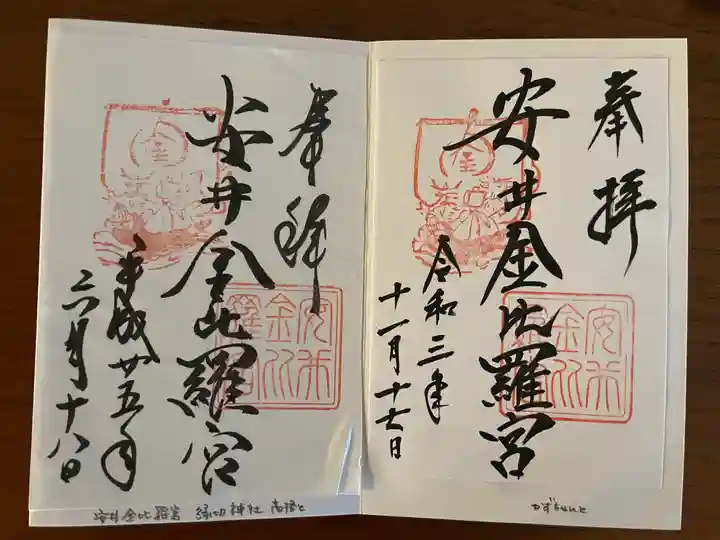 奉拝
安井金比羅宮
令和三年
十一月十七日
かずちゃんと
奉拝
安井金比羅宮
平成廿五年
六月十八日
安井金比羅宮 縁切神社